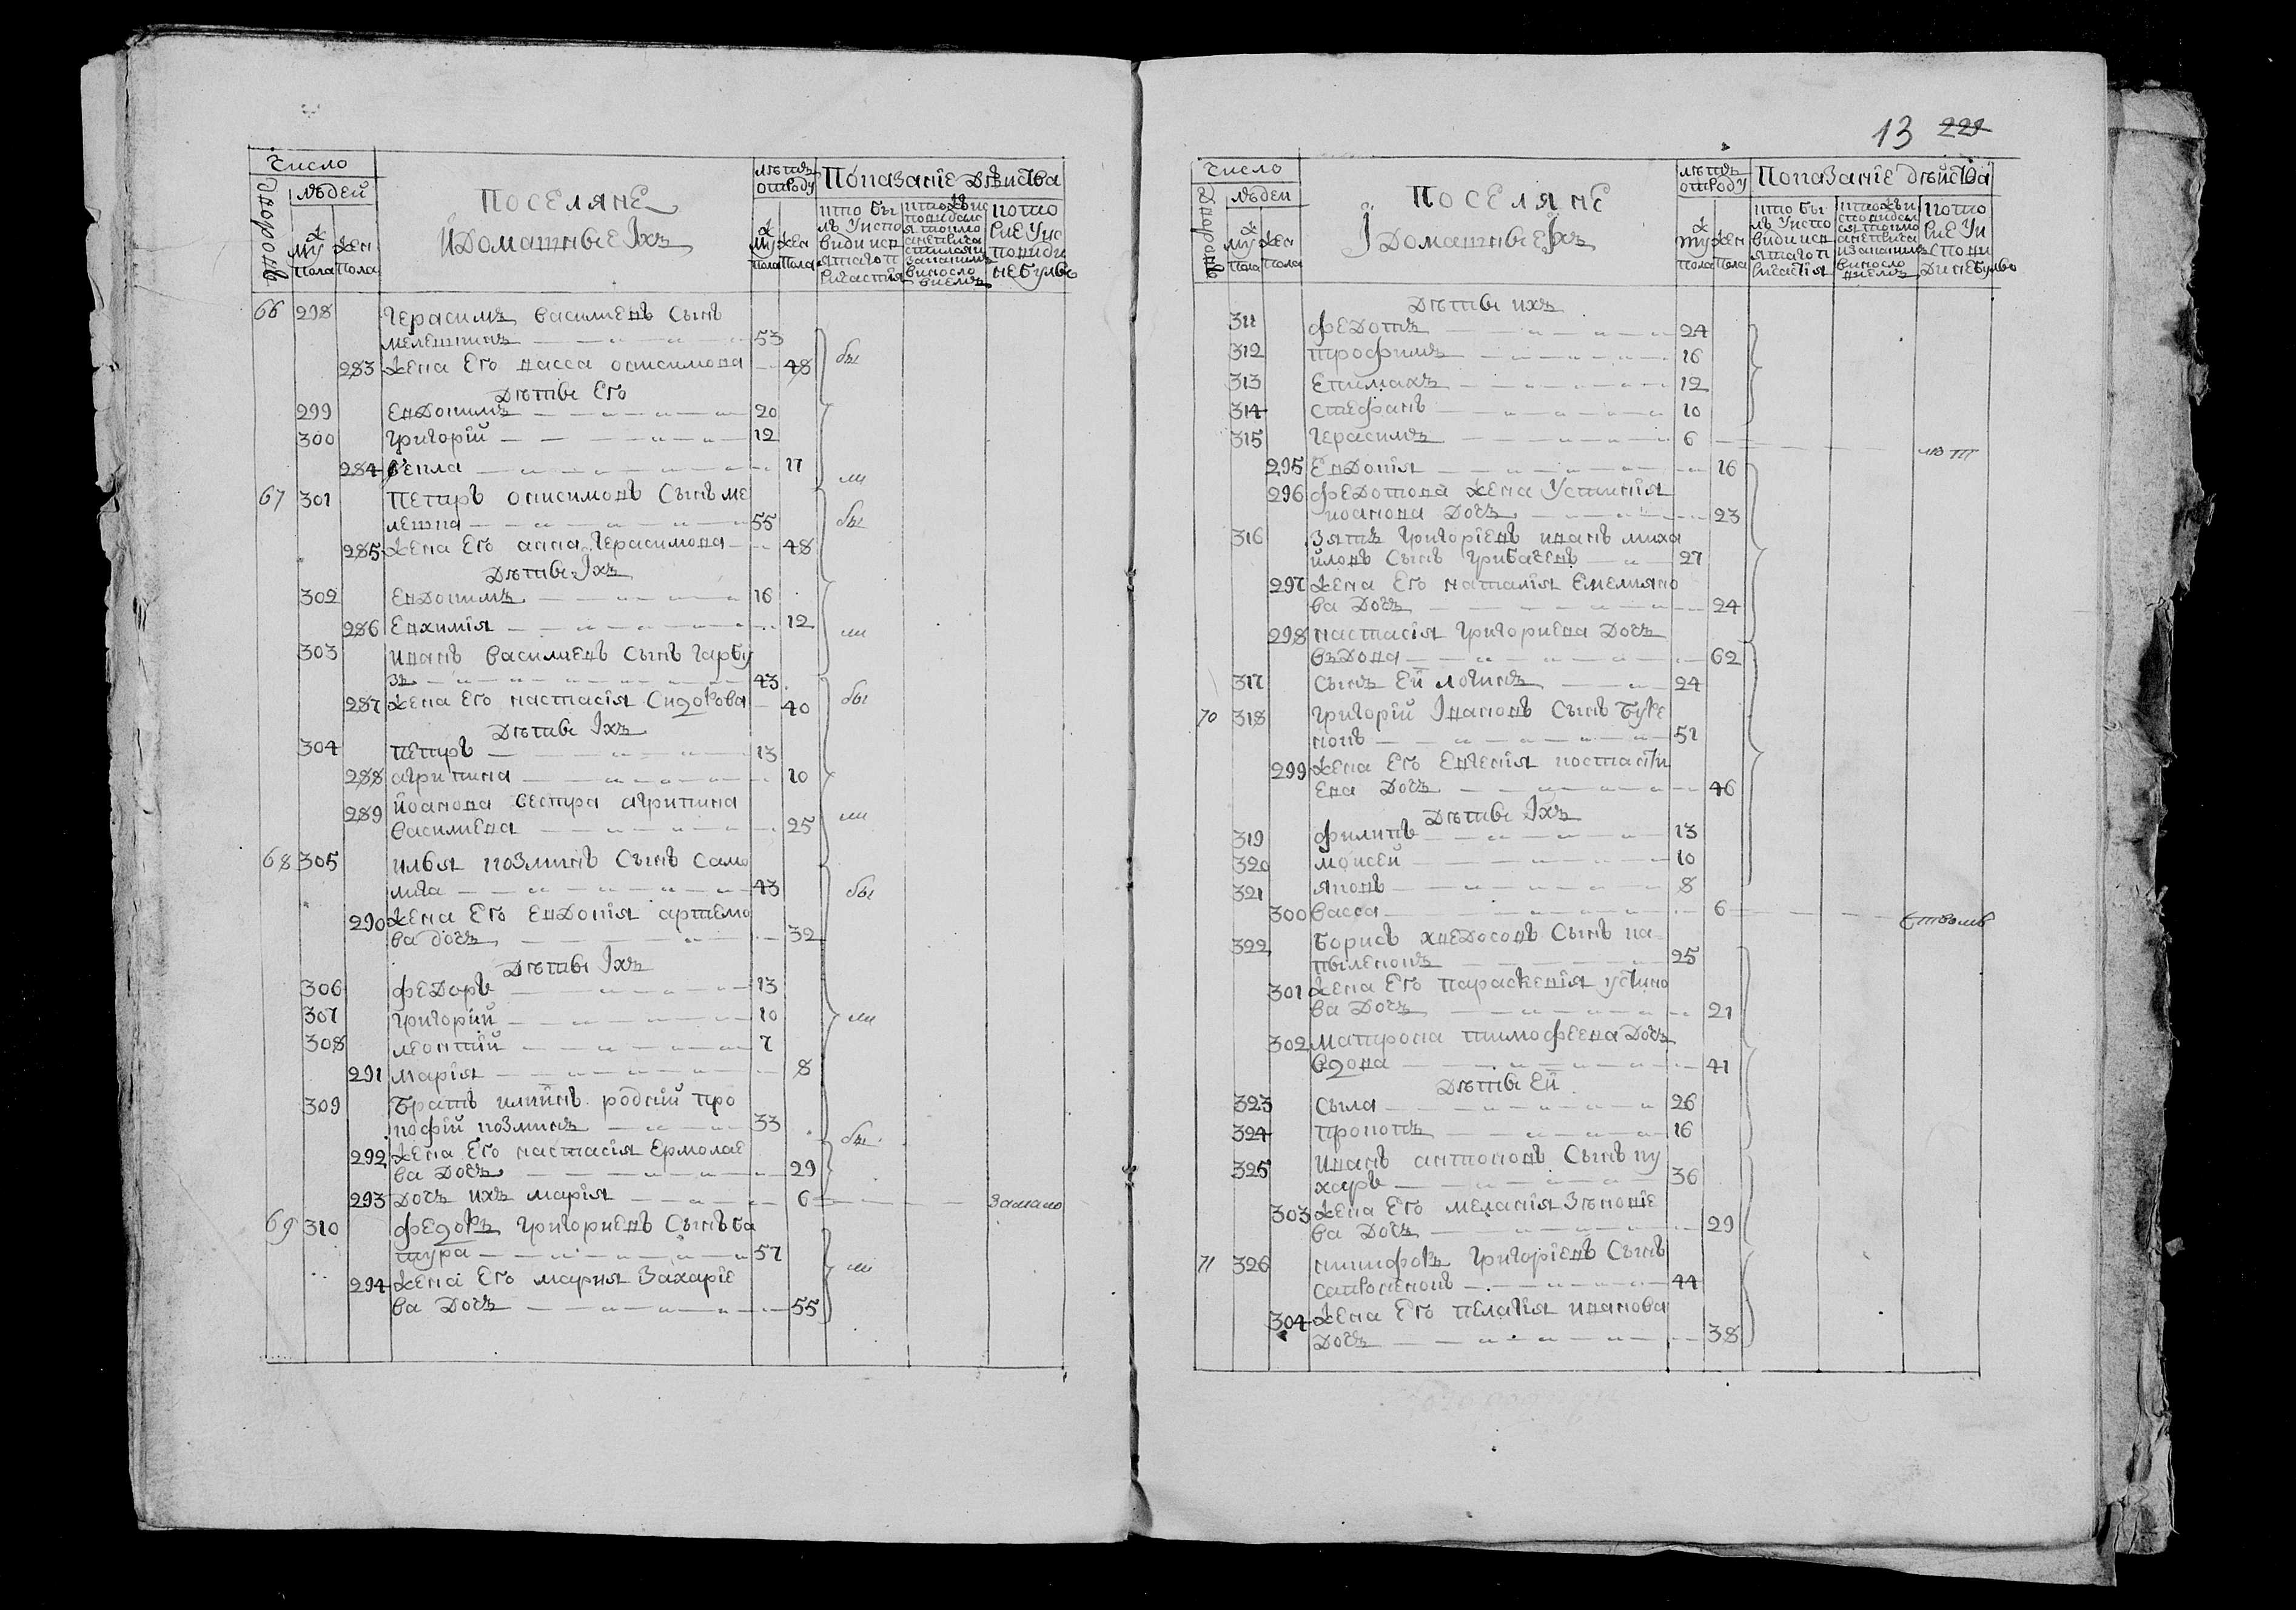 Число
Дворовъ
людей
муж
пола
жен
пола
Поселяне
и Домашные Іхъ
лѣтъ
отроду
муж
пола
жен
пола
Показаніе Дѣиства
кто бы
лъ Уиспо
види исв
ятаго п
ричастія
66 298 Герасимъ василиевъ Сынъ
мелешкинъ 53
283 жена Его васса онисимова 48 бы
Дѣтые Его
299 Евдокимъ 20
300 Григорій 12
284 Фекла 11 ли
67 301 Петръ онисимовъ Сынъ ме
лешка 55 бы
285 жена Его анна Герасимова 48
Дѣтые Іхъ
302 Евдокимъ 16
286 Евхимія 12 ли
303 иванъ василиевъ Сынъ гарбу
зъ 43
287 жена Его настасія Сидорова 40 бы
Дѣтые Іхъ
304 Петръ 13
288 агрипина 10
289 иоанова Сестра агрипина
василиева 25 ли
68 305 илья козминъ Сынъ Само
лига 43 бы
290 жена Его Евдокія артемо
ва дочъ 32
Дѣтые Іхъ
306 федоръ 13
307 григорий 10 ли
308 леонтий 7
291 марія 8
309 братъ илиинъ роднии про
кофій козминъ 33
292 жена Его настасія Ермолае
ва Дочъ 29 бы
293 Дочъ ихъ марія 6 Замало
69 310 федоръ григориевъ Сынъ ба
тура 57
294 жена Его мария Захаріе
ва Дочъ 55 ли
13 221
Число
Дворовъ
людеи
муж
пола
жен
пола
Поселяне
І Домашные Іхъ
лѣтъ
отроду
муж
пола
жен
пола
Показаніе дѣиства
кто бы
лъ Уиспо
види исв
ятаго п
ричастія
Дѣтые ихъ
311 федотъ 24
312 трофимъ 16
313 Епимахъ 12
314 стефанъ 10
315 герасимъ 6
295 Евдокія 16
296 федотова жена Устинія
иоанова Дочъ 23
316 Зять григоріевъ иванъ миха
иловъ Сынъ грибачевъ 27
297 жена Его наталія Емеляно
ва Дочъ 24
298 настасія григориева Дочъ
въдова 62
317 Сынъ Ей логинъ 24
70 318 григорій Івановъ Сынъ буке
новъ 51
299 жена Его Евгенія костанти
Ева Дочъ 46
Дѣтые Іхъ
319 филипъ 13
320 моисеи 10
321 яковъ 8
300 васса 6
322 борисъ хведосовъ Сынъ ка
пыленокъ 25
301 жена Его параскевія устино
ва Дочъ 21
302 матрона тимофеева Дочъ
вдова 41
Дѣтые Ей
323 Сыла 26
324 прокопъ 16
325 иванъ антоновъ Сынъ ку
харъ 36
303 жена Его меланія Зѣновіе
ва Дочъ 29
71 326 никифоръ григоріевъ Сынъ
сапроненокъ 44
304 жена Его пелагія иванова
Дочъ 38